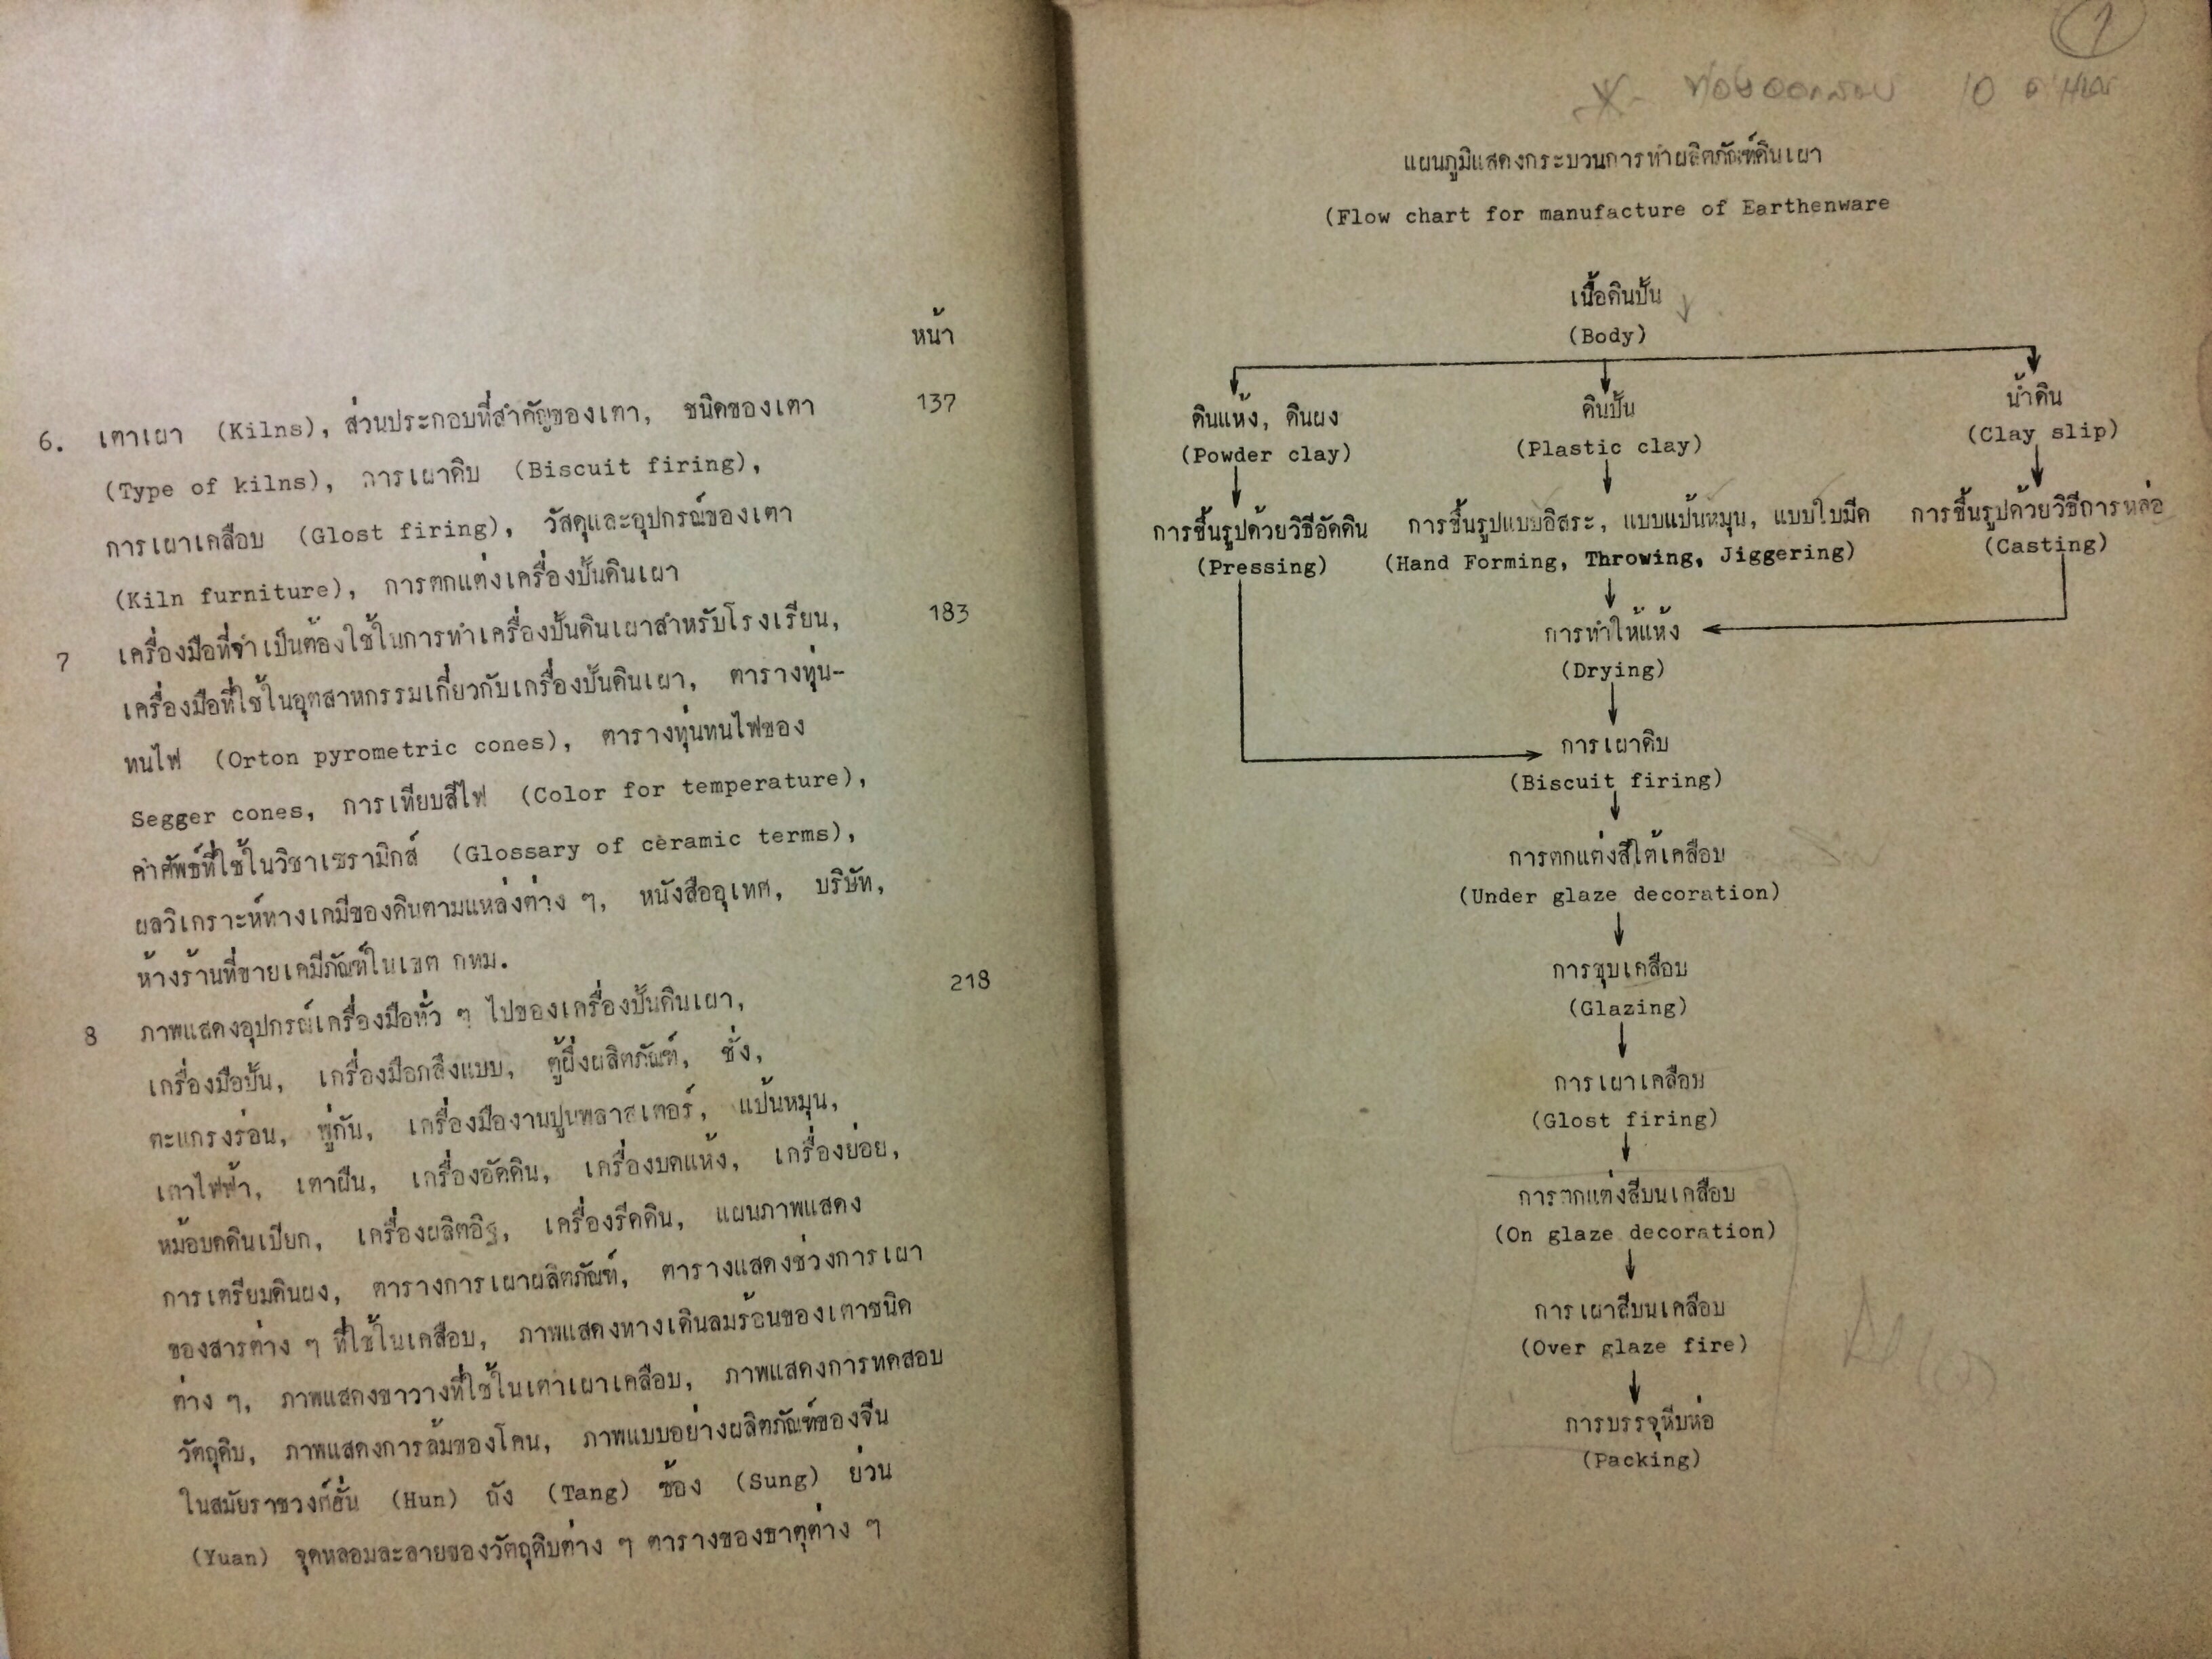 หน้า
6. เตาเผา (Kilns), ส่วนประกอบที่สำคัญของเตา, ชนิดของเตา 137
(Type of kilns), การเผาดิบ (Biscuit firing),
การเผาเคลือบ (Glost firing), วัสดุและอุปกรณ์ของเตา
(Kiln furniture), การตกแต่งเครื่องปั้นดินเผา
7 เครื่องมือที่จำเป็นต้องใช้ในการทำเครื่องปั้นดินเผาสำหรับโรงเรียน, 183
เครื่องมือที่ใช้ในอุตสาหกรรมเกี่ยวกับเครื่องปั้นดินเผา, ตารางทุ่น-
ทนไฟ (Orton pyrometric cones), ตารางทุ่นทนไฟของ
Segger cones, การเทียบสีไฟ (Color for temperature),
คำศัพธ์ที่ใช้ในวิชาเซรามิกส์ (Glossary of ceramic terms),
ผลวิเคราะห์ทางเคมีของดินตามแหล่งต่าง ๆ, หนังสืออุเทศ, บริษัท,
ห้างร้านที่ขายเคมีภัณฑ์ในเขต กทม.
8 ภาพแสดงอุปกรณ์เครื่องมือทั่ว ๆ ไปของเครื่องปั้นดินเผา, 218
เครื่องมือปั้น, เครื่องมือกลึงแบบ, ตู้ผึ่งผลิตภัณฑ์, ชั่ง,
ตะแกรงร่อน, พู่กัน, เครื่องมืองานปูนพลาสเตอร์, แป้นหมุน,
เตาไฟฟ้า, เตาฟืน, เครื่องอัดดิน, เครื่องบดแห้ง, เครื่องย่อย,
หม้อบดดินเปียก, เครื่องผลิตอิฐ, เครื่องรีดดิน, แผนภาพแสดง
การเตรียมดินผง, ตารางการเผาผลิตภัณฑ์, ตารางแสดงช่วงการเผา
ของสารต่าง ๆ ที่ใช้ในเคลือบ, ภาพแสดงทางเดินลมร้อนของเตาชนิด
ต่าง ๆ, ภาพแสดงขาวางที่ใช้ในเตาเผาเคลือบ, ภาพแสดงการทดสอบ
วัตถุดิบ, ภาพแสดงการล้มของโคน, ภาพแบบอย่างผลิตภัณฑ์ของจีน
ในสมัยราชวงศ์ฮั่น (Hun) ถัง (Tang) ซ้อง (Sung) ย่วน
(Yuan) จุดหลอมละลายของวัตถุดิบต่าง ๆ ตารางของธาตุต่าง ๆ
1
10
แผนภูมิแสดงกระบวนการทำผลิตภัณฑ์ดินเผา
(Flow chart for manufacture of Earthenware
เนื้อดินปั้น
(Body)
ดินแห้ง, ดินผง ดินปั้น น้ำดิน
(Powder clay) (Plastic clay) (Clay slip)
การขึ้นรูปด้วยวิธีอัดดิน การขึ้นรูปแบบอิสระ, แบบแป้นหมุน, แบบใบมีด การขึ้นรูปด้วยวิธีการหล่อ
(Pressing) (Hand Forming, Throwing, Jiggering) (Casting)
การทำให้แห้ง
(Drying)
การเผาดิบ
(Biscuit firing)
การตกแต่งสีใต้เคลือบ
(Under glaze decoration)
การชุบเคลือบ
(Glazing)
การเผาเคลือบ
(Glost firing)
การตกแต่งสีบนเคลือบ
(On glaze decoration)
การเผาสีบนเคลือบ
(Over glaze fire)
การบรรจุหีบห่อ
(Packing)